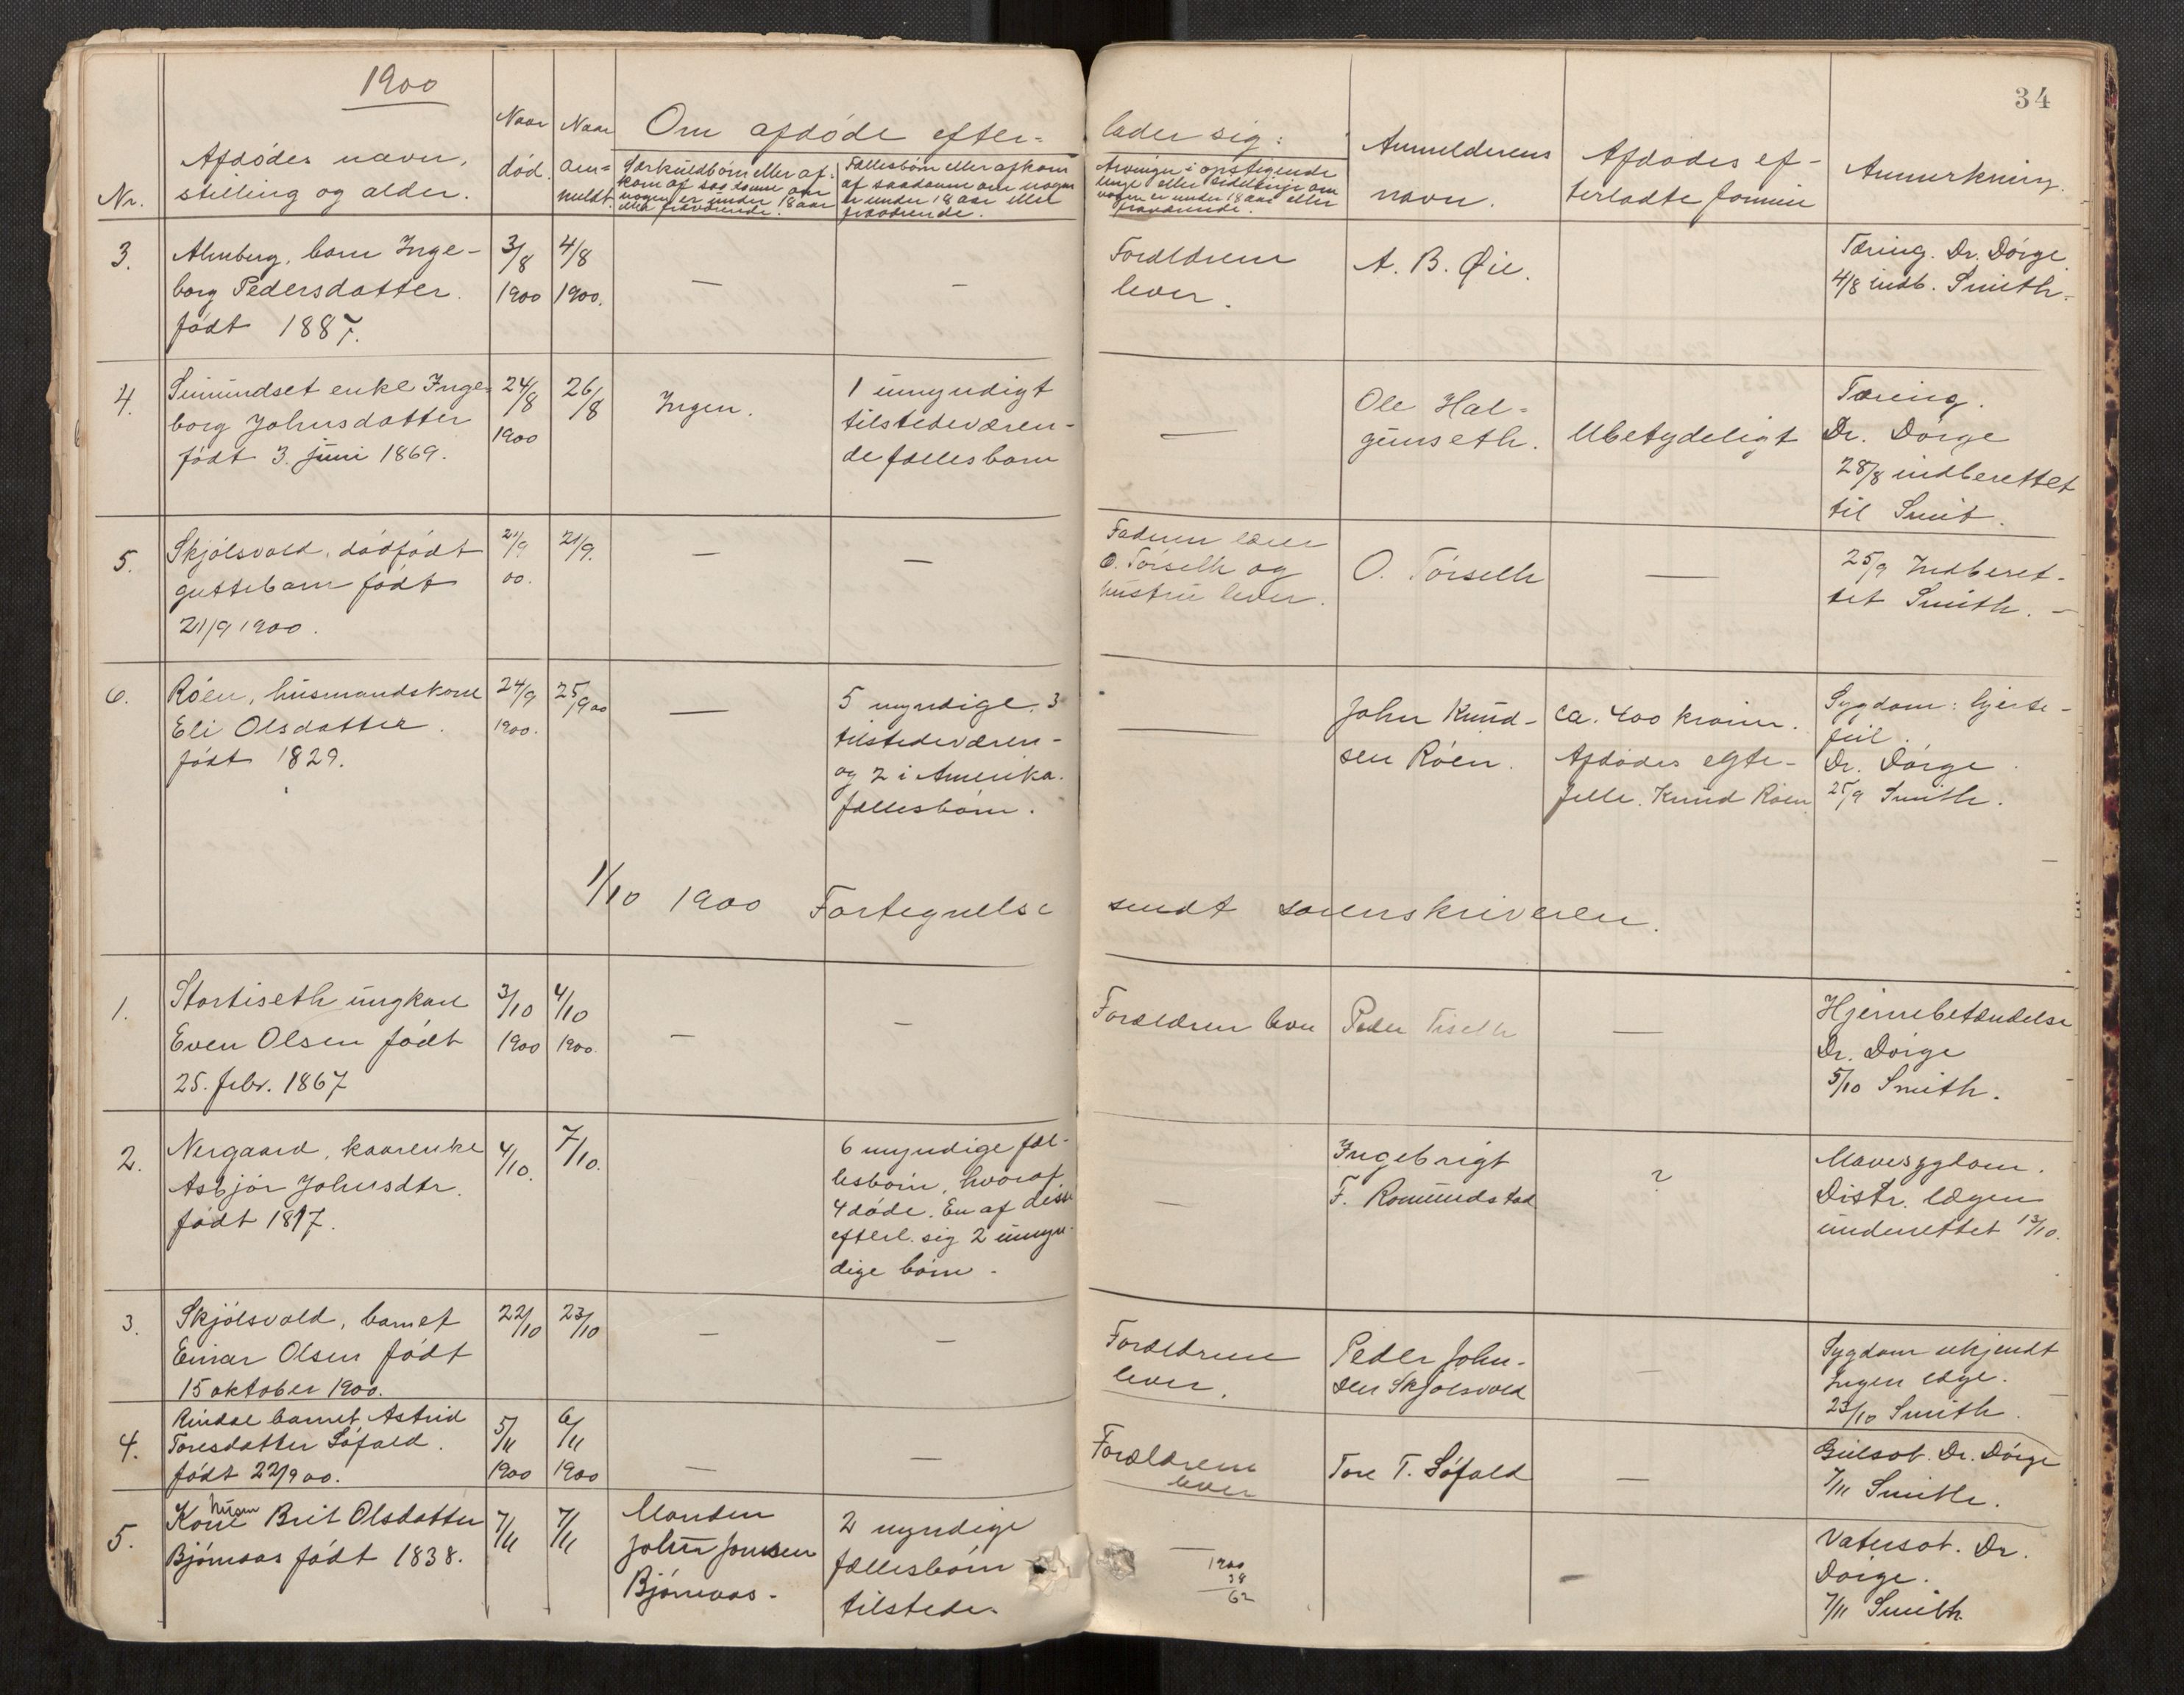 1900
34
Nr.
Afdödes navn,
stilling og alder.
Naar
död.
Naar
an=
meldt.
Om afdöde efter=
lader sig:
Særkuldbörn eller af-
kom af saadanne om
nogen er under 18 aar
eller fraværende.
Fællesbörn eller afkom
af saadanne om nogen
er under 18 aar eller
fraværende.
Arvinger i opstigende
linje eller sidelinje om
nogen er under 18 aar eller
fraværende.
Anmelderens
navn.
Afdödes ef-
terladte formue
Anmerkning.
3.
Almberg, barn Inge-
borg Pedersdatter.
födt 1887.
3/8
1900
4/8
1900.
—
—
Forældrene
lever.
A. B. Øie.
Tæring. Dr. Dörge
4/8 indb. Smith.
4.
Simundset enke Inge-
borg Johnsdatter
födt 3. juni 1869.
24/8
1900
26/8
Ingen.
1 umyndigt
tilstedeværen-
de fællesbarn
—
Ole Hal-
gunseth.
Ubetydeligt
Tæring.
Dr. Dörge
28/8 indberettet
til Smit.
5.
Skjölsvold, dödfödt
guttebarn födt
21/9 1900.
21/9
00.
21/9.
—
—
Faderen
O. Törseth og
hustru lever.
O. Törseth
—
25/9 Indberet-
tet Smith. -
6.
Röen, husmandskone
Eli Olsdatter.
födt 1829.
24/9
1900.
25/9 00
—
5 myndige, 3
tilstedeværen-
og 2 i Amerika.
fællesbörn.
—
John Knud-
sen Röen.
ca. 400 kroner.
Afdödes egte-
felle. Knud Röen
Sygdom: hjerte-
feil.
Dr. Dörge.
25/9 Smith.
1/10 1900 Fortegnelse sendt sorenskriveren.
1.
Stortiseth ungkarl
Even Olsen födt
25. febr. 1867
3/10
1900
4/10
1900.
—
—
Forældrene lever
Peder Tiseth
—
Hjernebetændelse
Dr. Dörge
5/10 Smith.
2.
Nergaard, kaarenke
Asbjör Johnsdtr.
födt 1817.
4/10.
7/10.
6 myndige fæl-
lesbörn, hvoraf
4 döde. En af disse
efterl. sig 2 umyn-
dige börn -
—
Ingebrigt
F. Romundstad
?
Mavesygdom.
Distr. lægen
underrettet 13/10.
3.
Skjölsvold, barnet
Einar Olsen födt
15 oktober 1900.
22/10
23/10
—
—
Forældrene
lever.
Peder John-
sen Skjölsvold
—
Sygdom ukjendt
Ingen læge.
23/10 Smith.
4.
Rindal barnet Astrid
Toresdatter Löfald.
födt 22/9 00.
5/11
1900
6/11
1900
—
—
Forældrene
lever
Tore T. Löfald
—
Gulsot. Dr. Dörge
7/11 Smith.
5.
husm
Kone Brit Olsdatter
Björnaas födt 1838.
7/11
7/11
Manden
John Jonsen
Björnaas -
2 myndige
fællesbörn
tilstede.
—
1900
38
62
—
Vatersot. Dr.
Dörge.
7/11 Smith.